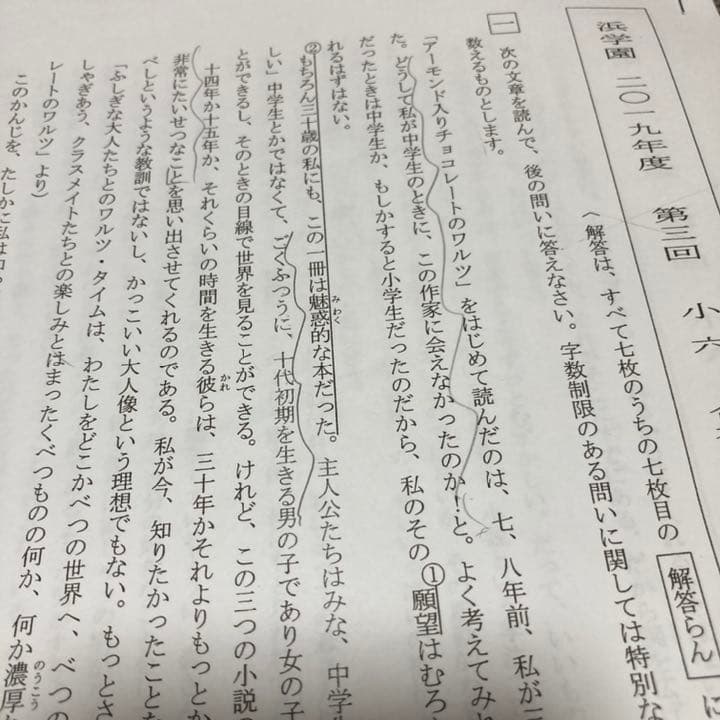 浜学園 二〇一九年度 第三回 小六
〈解答は、すべて七枚のうちの七枚目の解答らんに
一 次の文章を読んで、後の問いに答えなさい。字数制限のある問いに関しては特別な
数えるものとします。
「アーモンド入りチョコレートのワルツ」をはじめて読んだのは、七、八年前、私が二
た。どうして私が中学生のときに、この作家に会えなかったのか！と。よく考えてみれ
だったときは中学生か、もしかすると小学生だったのだから、私のその①願望はむろ
れるはずはない。
②もちろん三十歳の私にも、この一冊は魅惑的な本だった。主人公たちはみな、中学生
しい」中学生とかではなくて、ごくふつうに、十代初期を生きる男の子であり女の子
とができるし、そのときの目線で世界を見ることができる。けれど、この三つの小説の
十四年か十五年か、それくらいの時間を生きる彼らは、三十年かそれよりもっとか
非常にたいせつなことを思い出させてくれるのである。私が今、知りたかったことな
べしというような教訓ではないし、かっこいい大人像という理想でもない。もっとさ
「ふしぎな大人たちとのワルツ・タイムは、わたしをどこかべつの世界へ、べつの
しゃぎあう、クラスメイトたちとの楽しみとはまったくべつものの何か、何か濃厚
レートのワルツ」より)
このかんじを、たしかに私は